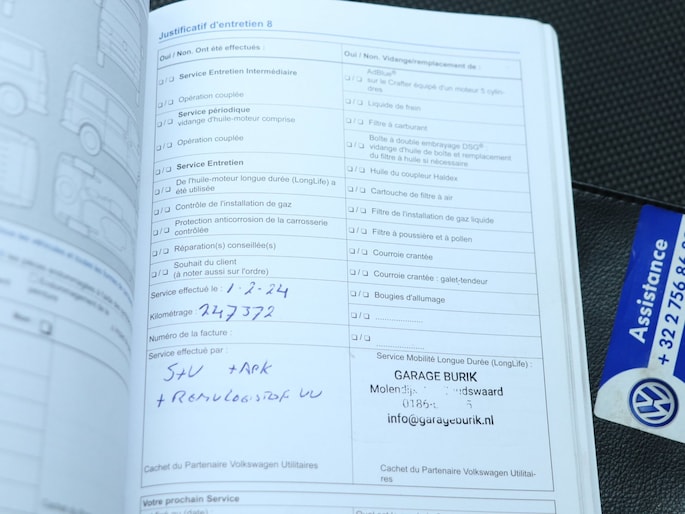 Justificatif d'entretien 8
Oui / Non. Ont été effectués :
❏ / ❏ Service Entretien Intermédiaire
❏ / ❏ Opération couplée
❏ / ❏ Service périodique
vidange d'huile-moteur comprise
❏ / ❏ Opération couplée
❏ / ❏ Service Entretien
❏ / ❏ De l'huile-moteur longue durée (LongLife) a
été utilisée
❏ / ❏ Contrôle de l'installation de gaz
❏ / ❏ Protection anticorrosion de la carrosserie
contrôlée
❏ / ❏ Réparation(s) conseillée(s)
❏ / ❏ Souhait du client
(à noter aussi sur l'ordre)
Service effectué le : 1-2-24
Kilométrage : 247372
Numéro de la facture :
Service effectué par :
+ APK
Cachet du Partenaire Volkswagen Utilitaires
Oui / Non. Vidange/remplacement de :
❏ / ❏ AdBlue®
sur le Crafter équipé d'un moteur 5 cylin-
dres
❏ / ❏ Liquide de frein
❏ / ❏ Filtre à carburant
❏ / ❏ Boîte à double embrayage DSG®
vidange d'huile de boîte et remplacement
du filtre à huile si nécessaire
❏ / ❏ Huile du coupleur Haldex
❏ / ❏ Cartouche de filtre à air
❏ / ❏ Filtre de l'installation de gaz liquide
❏ / ❏ Filtre à poussière et à pollen
❏ / ❏ Courroie crantée
❏ / ❏ Courroie crantée : galet-tendeur
❏ / ❏ Bougies d'allumage
❏ / ❏ .....................
❏ / ❏ .....................
Service Mobilité Longue Durée (LongLife) :
GARAGE BURIK
info@garageburik.nl
Cachet du Partenaire Volkswagen Utilitai-
res
Votre prochain Service
Assistance
+ 32 2 756 86